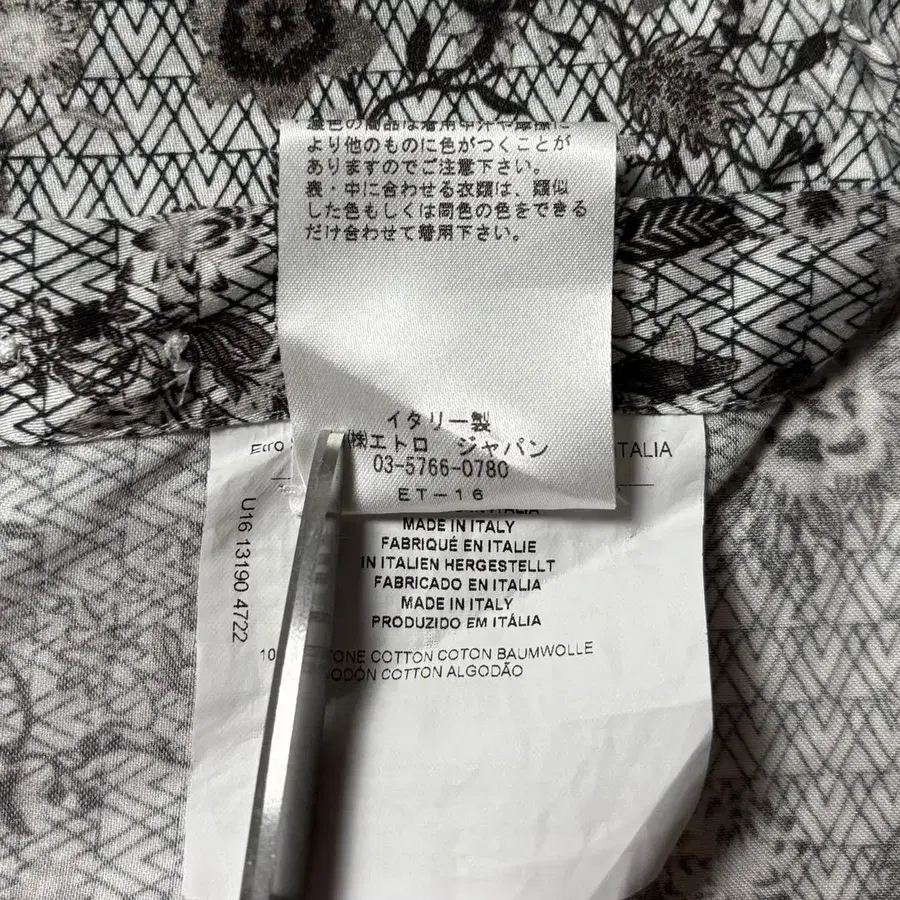 濃色の商品は着用中汗や摩擦に
より他のものに色がつくことが
ありますのでご注意下さい。
表・中に合わせる衣類は、類似
した色もしくは同色の色をできる
だけ合わせて着用下さい。
イタリー製
㈱エトロ ジャパン
03-5766-0780
ET-16
ITALIA
U16 13190 4722
IN ITALIA
MADE IN ITALY
FABRIQUÉ EN ITALIE
IN ITALIEN HERGESTELLT
FABRICADO EN ITALIA
MADE IN ITALY
PRODUZIDO EM ITÁLIA
COTTON COTON BAUMWOLLE
COTTON ALGODÃO